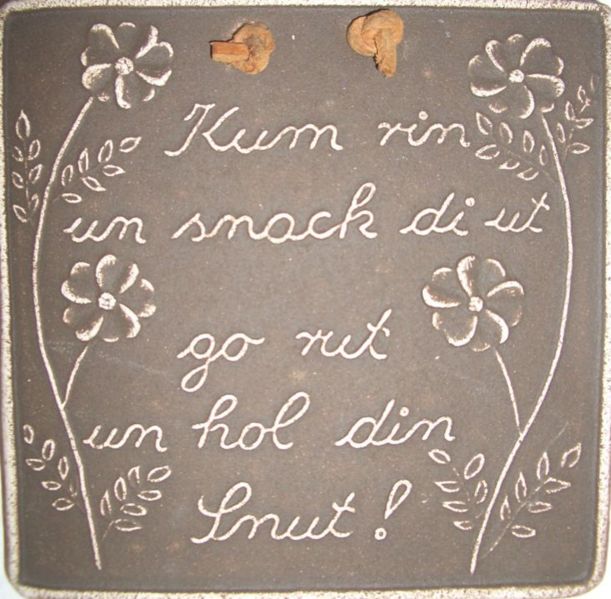 Kum rin
un snack di ut
go rut
un hol din
Snut!